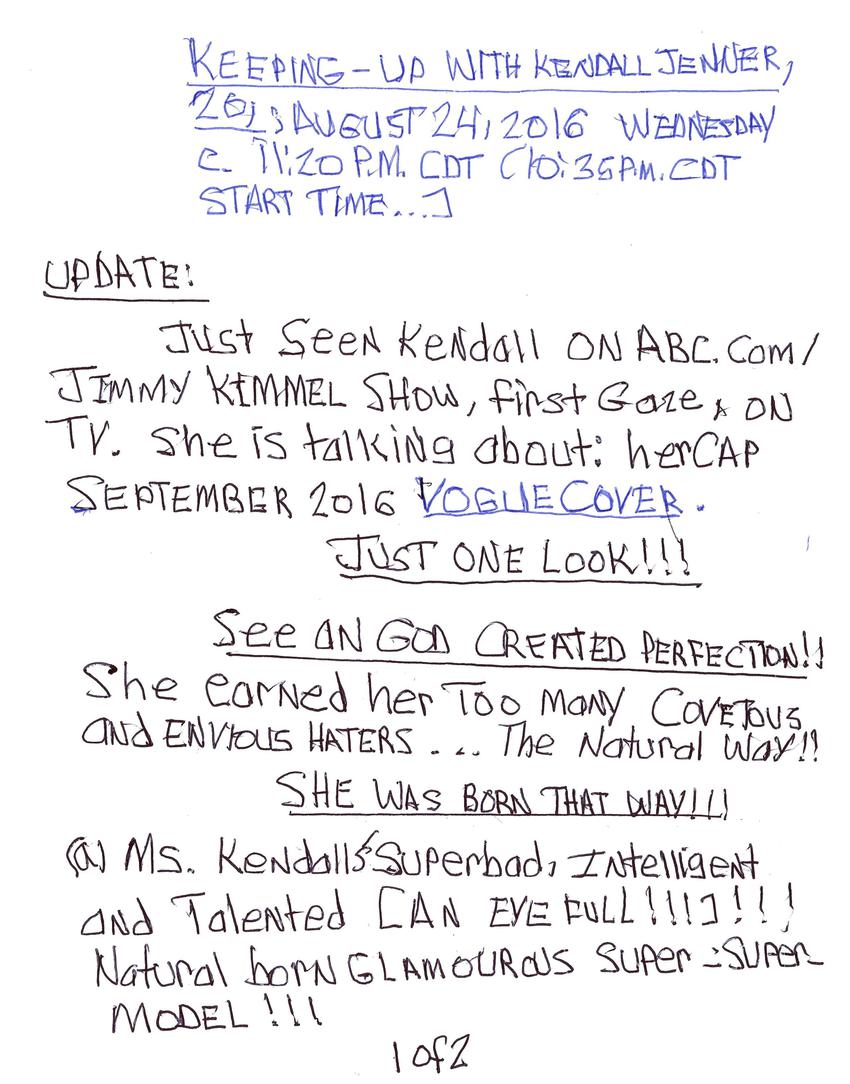 KEEPING-UP WITH KENDALL JENNER,
20,; AUGUST 24, 2016 WEDNESDAY
c. 11:20 P.M. CDT (10:35 P.M. CDT
START TIME...]
UPDATE:
Just Seen Kendall ON ABC.Com/
JIMMY KIMMEL SHOW, first Gaze, ON
TV. She is talking about: her CAP
SEPTEMBER 2016 VOGUE COVER.
JUST ONE LOOK!!!
See AN GOD CREATED PERFECTION!!
She earned her Too MANY COVETOUS
and ENVIOUS HATERS .... The Natural Way!!
SHE WAS BORN THAT WAY!!!
(a) Ms. Kendall's Superbad, Intelligent
and Talented [AN EYE FULL!!!]!!!
Natural born GLAMOUROUS Super-SUPER-
MODEL!!!
1 of 2